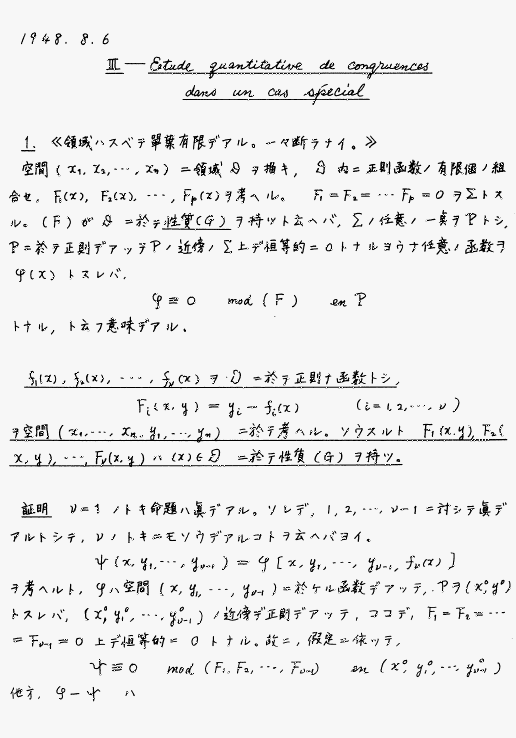 1948. 8. 6
III — Etude quantitative de congruences
dans un cas spécial
1. 《領域ハスベテ單葉有限デアル。一々断ラナイ。》
空間 (x₁, x₂, ⋯, xₙ) ニ領域 𝔇 ヲ描キ, 𝔇 内ニ正則函数ノ有限個ノ組
合セ, F₁(x), F₂(x), ⋯, Fₚ(x) ヲ考ヘル。 F₁ = F₂ = ⋯ Fₚ = 0 ヲ Σ トス
ル。(F) が 𝔇 ニ於テ性質(G) ヲ持ツト云ヘバ, Σ ノ任意ノ一桌ヲ P トシ,
P ニ於テ正則デアッテ P ノ近傍ノ Σ 上デ恒等的ニ 0 トナルヨウナ任意ノ函数ヲ
φ(x) トスレバ,
φ ≡ 0 mod (F) en P
トナル, ト云フ意味デアル。
f₁(x), f₂(x), ⋯, fν(x) ヲ 𝔇 ニ於テ正則ナ函数トシ,
Fᵢ(x, y) = yᵢ − fᵢ(x) (i = 1, 2, ⋯, ν)
ヲ空間 (x₁, ⋯, xₙ, y₁, ⋯, yₙ) ニ於テ考ヘル。ソウスルト F₁(x, y), F₂(
x, y), ⋯, Fν(x, y) ハ (x) ∈ 𝔇 ニ於テ性質 (G) ヲ持ツ。
証明 ν = 1 ノトキ命題ハ眞デアル。ソレデ, 1, 2, ⋯, ν−1 ニ対シテ眞デ
アルトシテ, ν ノトキニモソウデアルコトヲ云ヘバヨイ。
ψ(x, y₁, ⋯, yν₋₁) = φ[x, y₁, ⋯, yν₋₁, fν(x)]
ヲ考ヘルト, φ ハ空間 (x, y₁, ⋯, yν₋₁) ニ於ケル函数デアッテ, P ヲ (x⁰, y⁰)
トスレバ, (x⁰, y₁⁰, ⋯, yν₋₁⁰) ノ近傍デ正則デアッテ, ココデ, F₁ = F₂ = ⋯
= Fν₋₁ = 0 上デ恒等的ニ 0 トナル。故ニ, 假定ニ依ッテ,
ψ ≡ 0 mod (F₁, F₂, ⋯, Fν₋₁) en (x⁰, y₁⁰, ⋯, yν₋₁⁰)
他方, φ − ψ ハ